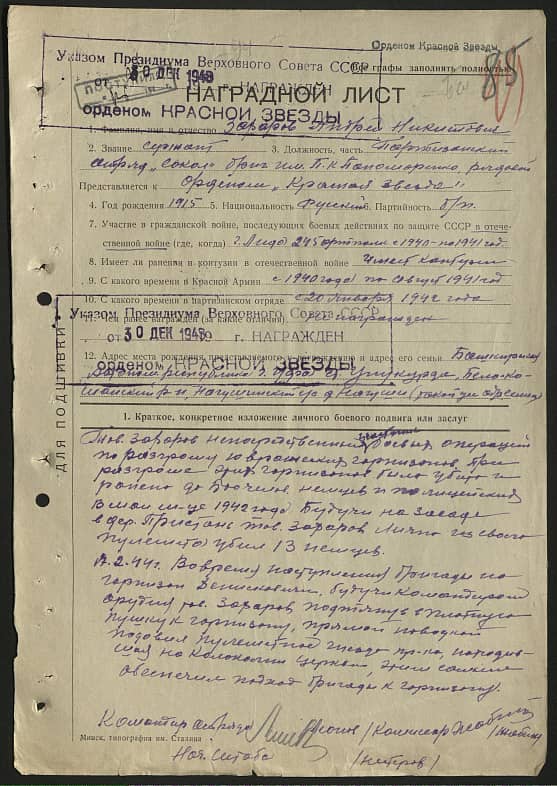 Орденом Красной Звезды
Указом Президиума Верховного Совета СССР
Все графы заполнять полностью
85
от 30 ДЕК 1948 г. НАГРАЖДЕН
НАГРАДНОЙ ЛИСТ
орденом КРАСНОЙ ЗВЕЗДЫ
1. Фамилия, имя и отчество Захаров Андрей Никитович
2. Звание сержант 3. Должность, часть Партизанский
отряд „Сокол" бриг. им. П. К. Пономаренко, рядовой
Представляется к Орденом „Красная звезда"
4. Год рождения 1915 5. Национальность Русский 6. Партийность б/п.
7. Участие в гражданской войне, последующих боевых действиях по защите СССР в отече-
ственной войне (где, когда) г. Лида 245 артполк с 1940 – по 1941 год
8. Имеет ли ранения и контузии в отечественной войне Имеет контузию
9. С какого времени в Красной Армии с 1940 года по август 1941 год
10. С какого времени в партизанском отряде с 20 января 1942 года
11. Чем ранее награжден (за какие отличия) не награжден
Указом Президиума Верховного Совета СССР
от 30 ДЕК 1948 г. НАГРАЖДЕН
орденом КРАСНОЙ ЗВЕЗДЫ
12. Адрес места рождения представляемого к награждению и адрес его семьи Башкирская
республика г. Уфа
р-н д.
ДЛЯ ПОДШИВКИ
1. Краткое, конкретное изложение личного боевого подвига или заслуг
Тов. Захаров непосредственный участник боевых операций
по разгрому 10 вражеских гарнизонов. При
разгроме этих гарнизонов было убито и
ранено до человек немцев и полицейских
В мае м-це 1942 года Будучи на засаде
в дер. Пристань тов. Захаров Лично из своего
пулемета убил 13 немцев.
2.44 г. Вовремя наступления Бригады на
гарнизон будучи командиром
орудия тов. Захаров подтянув вплотную
пушку к гарнизону, прямой наводкой
подавил пулеметное гнездо пр-ка, находив-
шееся на колокольни церкви, этим самым
обеспечил подход Бригады к гарнизону.
Командир отряда /Комиссар
Минск, типография им. Сталина
Нач. Штаба